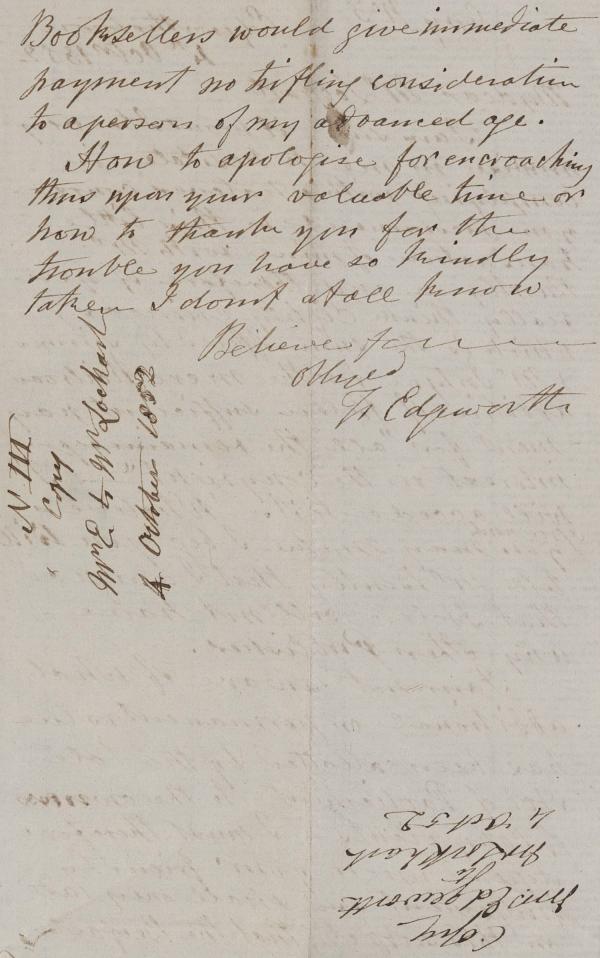 Booksellers would give immediate
payment no trifling consideration
to a person of my advanced age.
How to apologise for encroaching
thus upon your valuable time or
how to thank you for the
trouble you have so kindly
taken I dont at all know
Believe
obliged
Edgeworth
N III
Copy
Mrs E to Mr Lockhart
4 October 1852
Copy
Mrs Edgeworth
to
Mr Lockhart
4 Oct 52